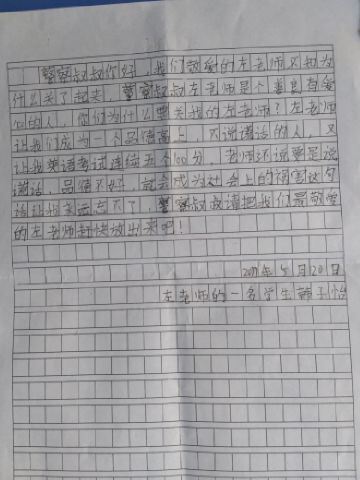 警察叔叔你好,我们敬爱的左老师不知为
什么关了起来,警察叔叔左老师是个善良有爱
心的人,你们为什么要关我的左老师?左老师
让我们成为一个品德高上,不说谎话的人,又
让我英语考试连续五个100分,老师还说要是说
谎话,品德不好,就会成为社会上的祸害这句
话让我永远忘不了,警察叔叔请把我们最敬爱
的左老师赶快放出来吧!
年5月20日
左老师的一名学生韩子怡